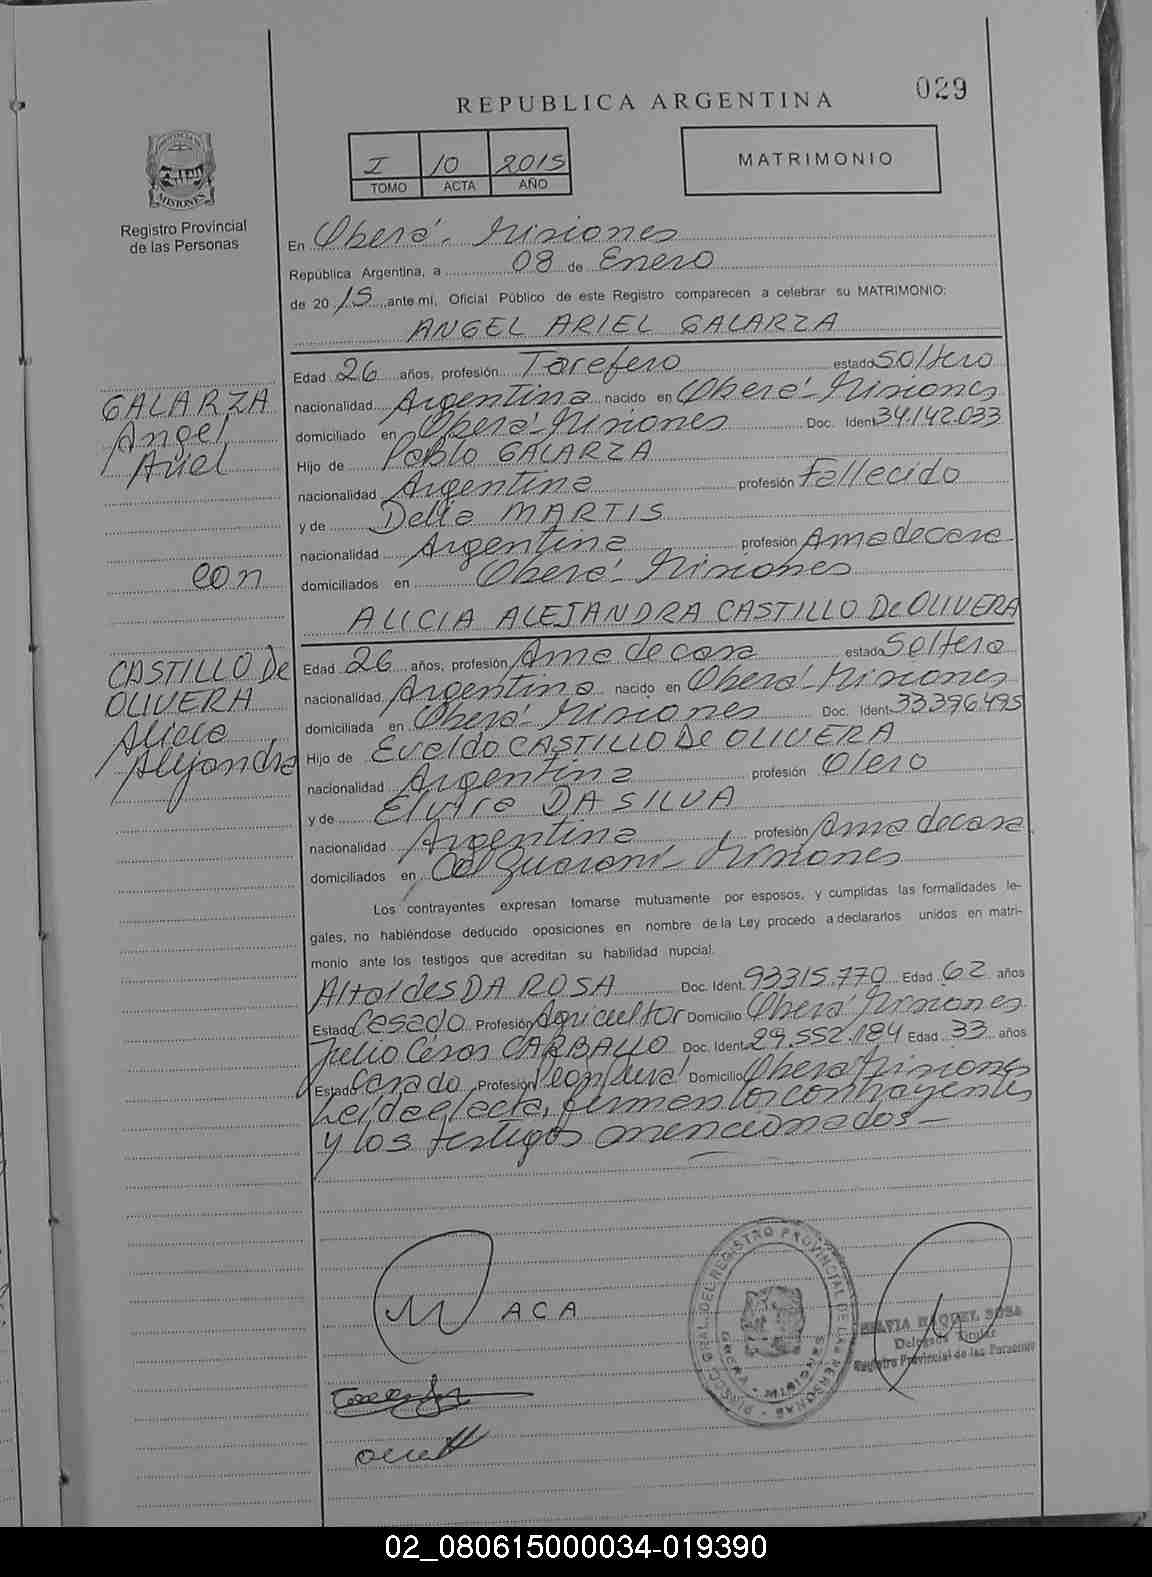 029
REPUBLICA ARGENTINA
I 10 2015
TOMO ACTA AÑO
MATRIMONIO
MISIONES
Registro Provincial
de las Personas
En Oberá - Misiones
República Argentina, a 08 de Enero
de 2015 ante mí, Oficial Público de este Registro comparecen a celebrar su MATRIMONIO:
ANGEL ARIEL GALARZA
Edad 26 años, profesión Tarefero estado Soltero
nacionalidad Argentina nacido en Oberá - Misiones
domiciliado en Oberá - Misiones Doc. Ident. 34.142.033
Hijo de Pablo GALARZA
nacionalidad Argentina profesión Fallecido
y de Delia MARTIS
nacionalidad Argentina profesión Ama de casa
domiciliados en Oberá - Misiones
GALARZA
Angel
Ariel
con
ALICIA ALEJANDRA CASTILLO De OLIVERA
CASTILLO De
OLIVERA
Alicia
Alejandra
Edad 26 años, profesión Ama de casa estado Soltera
nacionalidad Argentina nacido en Oberá - Misiones
domiciliada en Oberá - Misiones Doc. Ident. 33.396.495
Hijo de Evaldo CASTILLO De OLIVERA
nacionalidad Argentina profesión Olero
y de Elvira DA SILVA
nacionalidad Argentina profesión Ama de casa
domiciliados en Col Guaraní - Misiones
Los contrayentes expresan tomarse mutuamente por esposos, y cumplidas las formalidades le-
gales, no habiéndose deducido oposiciones en nombre de la Ley procedo a declararlos unidos en matri-
monio ante los testigos que acreditan su habilidad nupcial.
Altaides DA ROSA Doc. Ident. 93315.770 Edad 62 años
Estado Casado Profesión Agricultor Domicilio Oberá Misiones
Julio César CARBALLO Doc. Ident. 29.552.184 Edad 33 años
Estado Casado Profesión Domicilio Oberá Misiones
Leída el acta, firman los contrayentes
y los testigos mencionados -
ACA
DIRECC. GRAL. DEL REGISTRO PROVINCIAL DE LAS PERSONAS
OBERA - MISIONES
SILVIA RAQUEL SOSA
Delegada Titular
Registro Provincial de las Personas
02_080615000034-019390